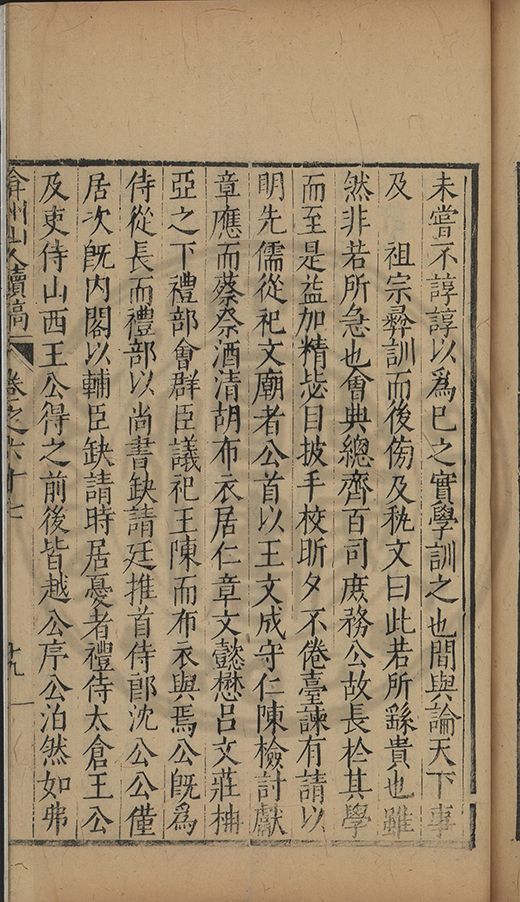 未嘗不諄諄以爲巳之實學訓之也間與論天下事
及　祖宗彝訓而後傍及秇文曰此若所繇貴也雖
然非若所急也會典總齊百司庶務公故長於其學
而至是益加精毖目披手校昕夕不倦臺諫有請以
明先儒從祀文廟者公首以王文成守仁陳檢討獻
章應而蔡祭酒清胡布衣居仁章文懿懋呂文莊柟
亞之下禮部會群臣議祀王陳而布衣與焉公旣爲
侍從長而禮部以尚書缺請廷推首侍郎沈公公僅
居次旣内閣以輔臣缺請時居憂者禮侍太倉王公
及吏侍山西王公得之前後皆越公序公泊然如弗
弇州山人續稿　卷之六十七　十九